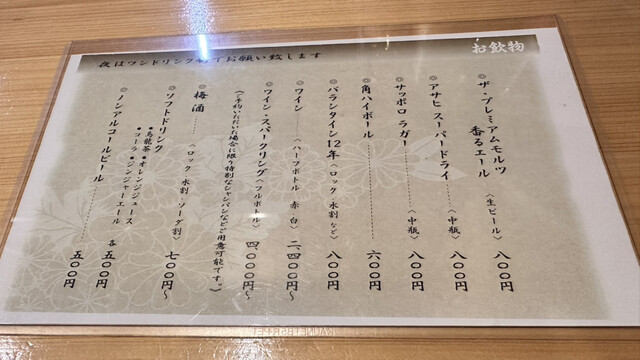 お飲物
夜はワンドリンク制でお願い致します
◎ザ・プレミアムモルツ
香るエール 〈生ビール〉 八〇〇円
◎アサヒスーパードライ……〈中瓶〉 八〇〇円
◎サッポロ ラガー……〈中瓶〉 八〇〇円
◎角ハイボール…… 六〇〇円
◎バランタイン12年〈ロック・水割など〉 八〇〇円
◎ワイン……〈ハーフボトル 赤 白〉 二、四〇〇円〜
◎ワイン・スパークリング〈フルボトル〉 四、〇〇〇円〜
(ご予約いただいた場合に限り特別なシャンパンなどご用意可能です。)
◎梅酒……〈ロック・水割・ソーダ割〉 七〇〇円〜
◎ソフトドリンク
●烏龍茶 ●オレンジジュース
●コーラ ●ジンジャーエール 各 五〇〇円
◎ノンアルコールビール…… 五〇〇円